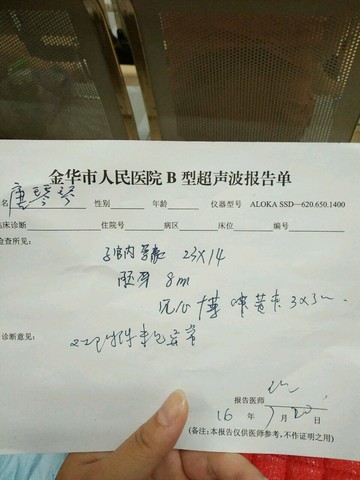 金华市人民医院 B 型超声波报告单
名 唐琴琴 性别 年龄 仪器型号 ALOKA SSD—620.650.1400
床诊断 住院号 病区 床位 编号
检查所见：
子宫内孕囊 23X14
胚芽 8m
见心搏 卵黄囊 3X3
诊断意见：
附件未见异常
报告医师
16 年 7 月 20 日
(备注：本报告仅供医师参考，不作证明之用)